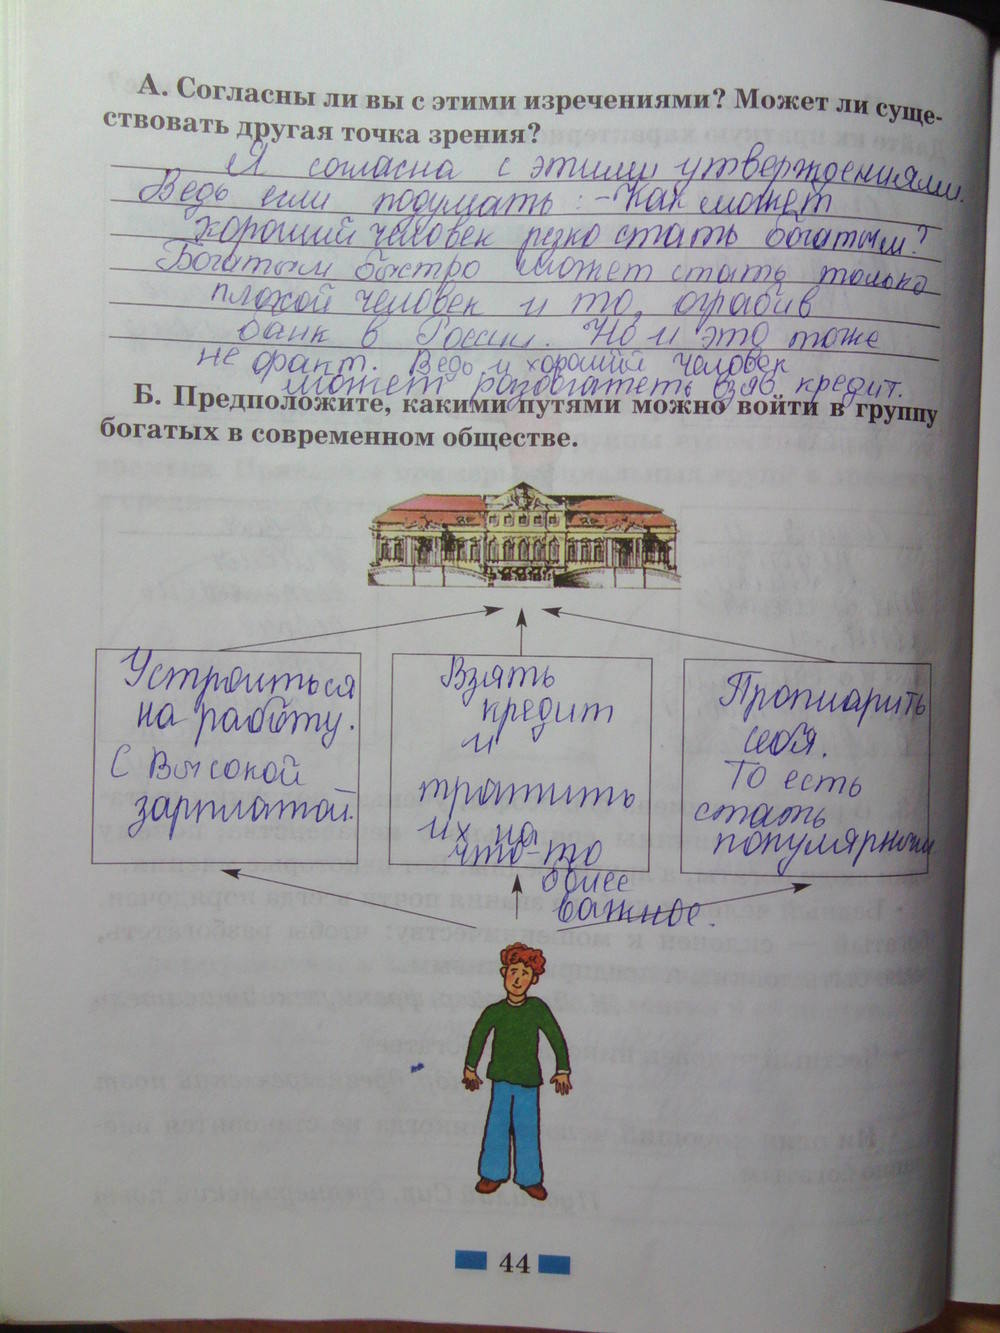 А. Согласны ли вы с этими изречениями? Может ли суще-
ствовать другая точка зрения?
Я согласна с этими утверждениями.
Ведь если подумать: - Как может
хороший человек резко стать богатым?
Богатым быстро может стать только
плохой человек и то, ограбив
банк в России. Но и это тоже
не факт. Ведь и хороший человек
может разбогатеть взяв кредит.
Б. Предположите, какими путями можно войти в группу
богатых в современном обществе.
Устроиться
на работу.
С высокой
зарплатой.
Взять
кредит
и
тратить
их на
что-то
более
важное.
Пропиарить
себя.
То есть
стать
популярным
44